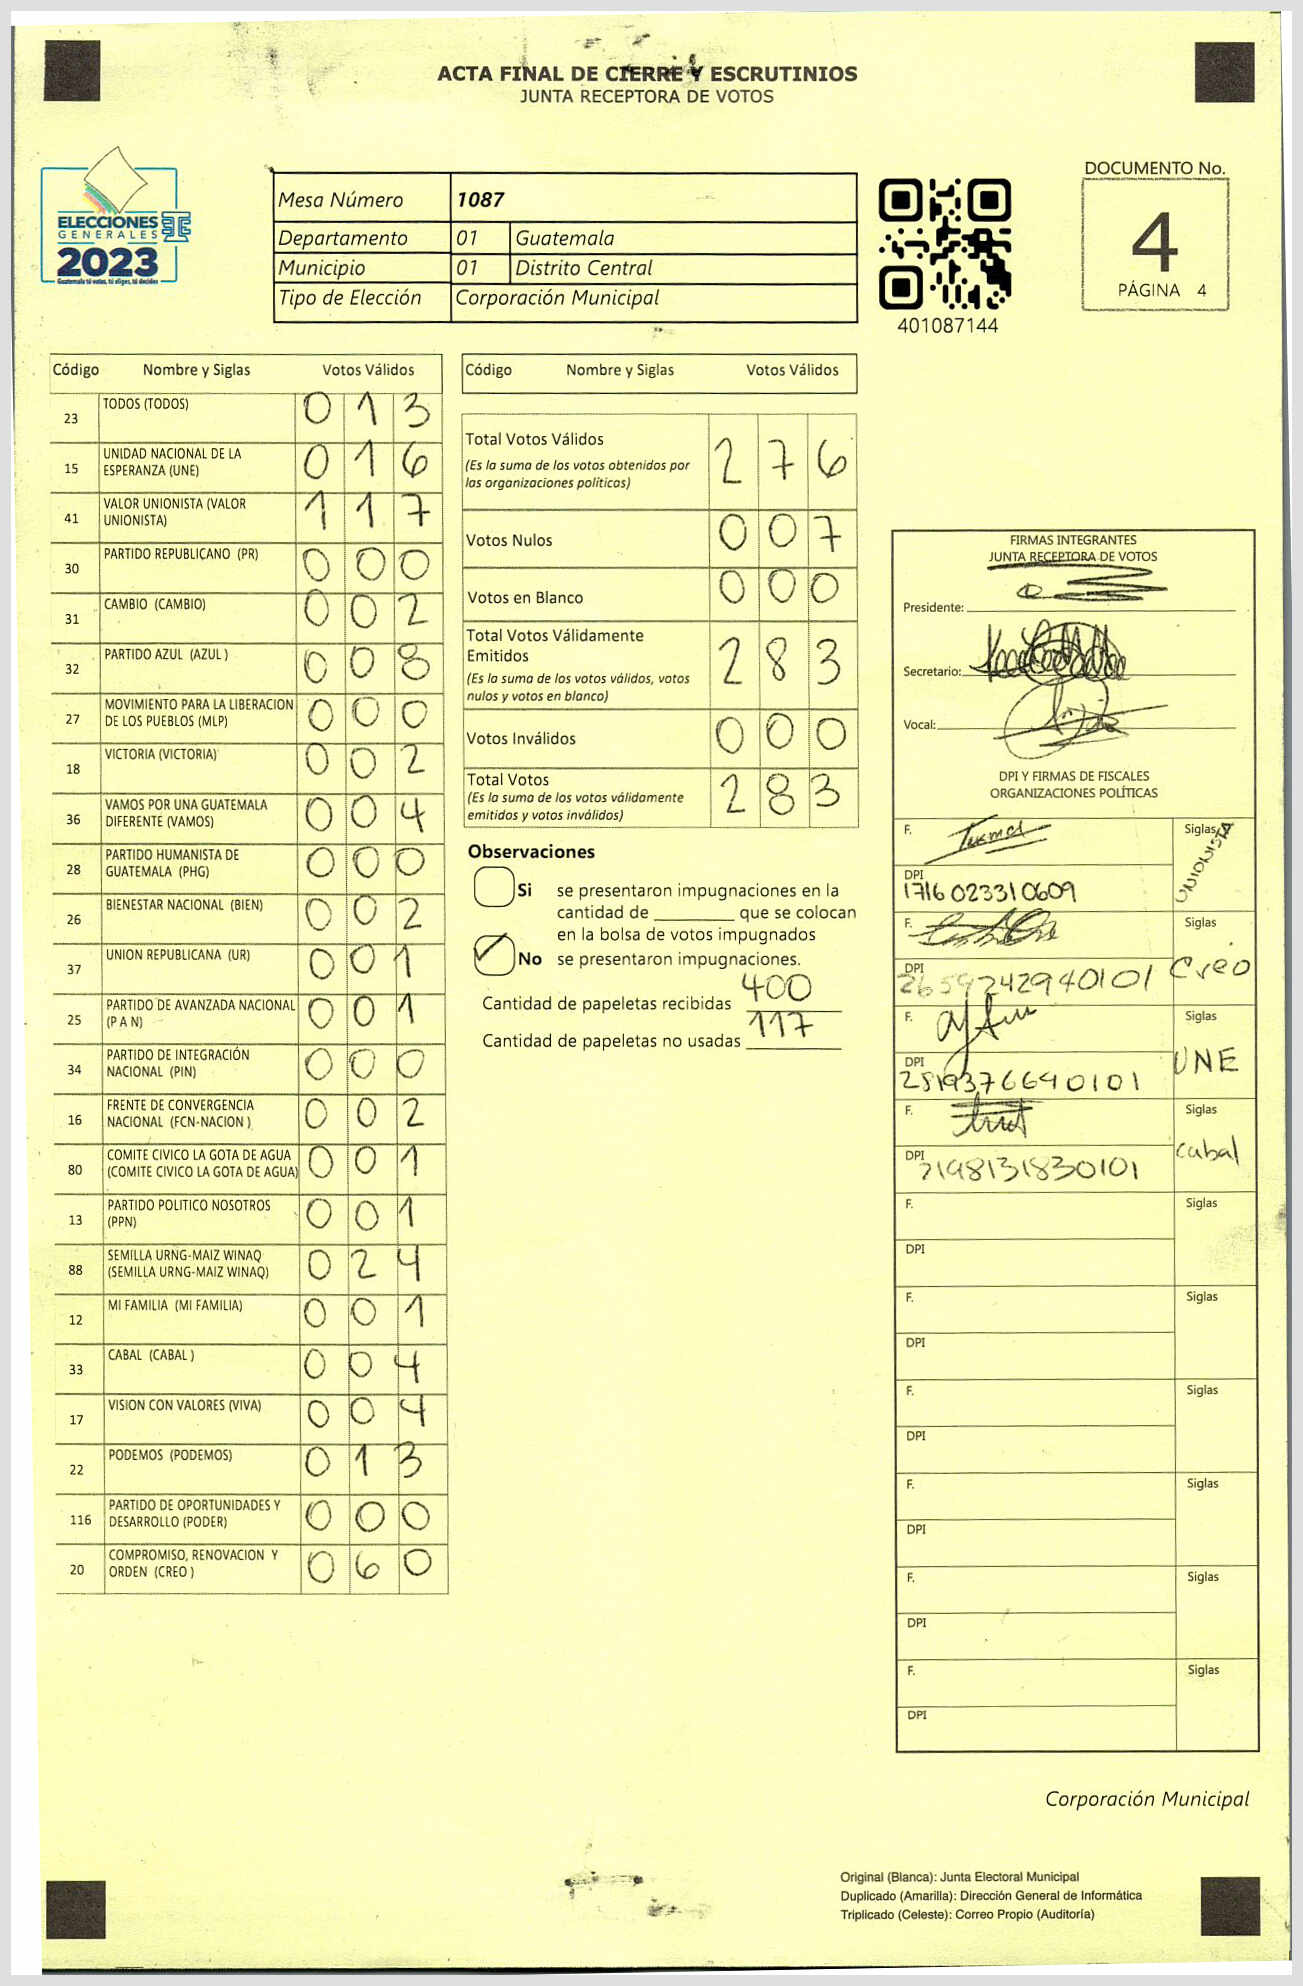 ACTA FINAL DE CIERRE Y ESCRUTINIOS
JUNTA RECEPTORA DE VOTOS
ELECCIONES
GENERALES
2023
Guatemala tú votas, tú eliges, tú decides
Mesa Número 1087
Departamento 01 Guatemala
Municipio 01 Distrito Central
Tipo de Elección Corporación Municipal
401087144
DOCUMENTO No.
4
PÁGINA 4
Código Nombre y Siglas Votos Válidos
23 TODOS (TODOS) 0 1 3
15 UNIDAD NACIONAL DE LA
ESPERANZA (UNE) 0 1 6
41 VALOR UNIONISTA (VALOR
UNIONISTA) 1 1 7
30 PARTIDO REPUBLICANO (PR) 0 0 0
31 CAMBIO (CAMBIO) 0 0 2
32 PARTIDO AZUL (AZUL ) 0 0 8
27 MOVIMIENTO PARA LA LIBERACION
DE LOS PUEBLOS (MLP) 0 0 0
18 VICTORIA (VICTORIA) 0 0 2
36 VAMOS POR UNA GUATEMALA
DIFERENTE (VAMOS) 0 0 4
28 PARTIDO HUMANISTA DE
GUATEMALA (PHG) 0 0 0
26 BIENESTAR NACIONAL (BIEN) 0 0 2
37 UNION REPUBLICANA (UR) 0 0 1
25 PARTIDO DE AVANZADA NACIONAL
(P A N) 0 0 1
34 PARTIDO DE INTEGRACIÓN
NACIONAL (PIN) 0 0 0
16 FRENTE DE CONVERGENCIA
NACIONAL (FCN-NACION ) 0 0 2
80 COMITE CIVICO LA GOTA DE AGUA
(COMITE CIVICO LA GOTA DE AGUA) 0 0 1
13 PARTIDO POLITICO NOSOTROS
(PPN) 0 0 1
88 SEMILLA URNG-MAIZ WINAQ
(SEMILLA URNG-MAIZ WINAQ) 0 2 4
12 MI FAMILIA (MI FAMILIA) 0 0 1
33 CABAL (CABAL ) 0 0 4
17 VISION CON VALORES (VIVA) 0 0 4
22 PODEMOS (PODEMOS) 0 1 3
116 PARTIDO DE OPORTUNIDADES Y
DESARROLLO (PODER) 0 0 0
20 COMPROMISO, RENOVACION Y
ORDEN (CREO ) 0 6 0
Código Nombre y Siglas Votos Válidos
Total Votos Válidos 2 7 6
(Es la suma de los votos obtenidos por
las organizaciones políticas)
Votos Nulos 0 0 7
Votos en Blanco 0 0 0
Total Votos Válidamente
Emitidos 2 8 3
(Es la suma de los votos válidos, votos
nulos y votos en blanco)
Votos Inválidos 0 0 0
Total Votos 2 8 3
(Es la suma de los votos válidamente
emitidos y votos inválidos)
Observaciones
Si se presentaron impugnaciones en la
cantidad de ________ que se colocan
en la bolsa de votos impugnados
No se presentaron impugnaciones.
Cantidad de papeletas recibidas 400
Cantidad de papeletas no usadas 117
FIRMAS INTEGRANTES
JUNTA RECEPTORA DE VOTOS
Presidente:
Secretario:
Vocal:
DPI Y FIRMAS DE FISCALES
ORGANIZACIONES POLÍTICAS
F. Siglas UNIONISTA
DPI
1716 023310609
F. Siglas
DPI 2659242940101 Creo
F. Siglas
DPI UNE
2819376640101
F. Siglas
DPI 2198131830101 cabal
F. Siglas
DPI
F. Siglas
DPI
F. Siglas
DPI
F. Siglas
DPI
F. Siglas
DPI
F. Siglas
DPI
Corporación Municipal
Original (Blanca): Junta Electoral Municipal
Duplicado (Amarilla): Dirección General de Informática
Triplicado (Celeste): Correo Propio (Auditoría)